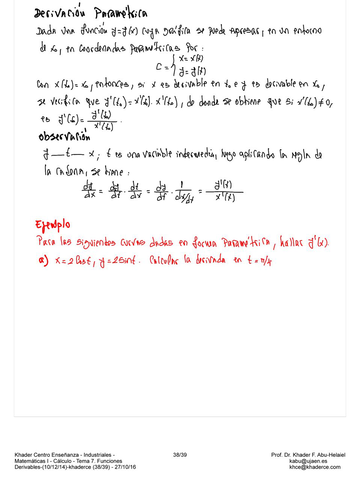 Derivación Paramétrica
Dada una función y=y(x) cuya gráfica se puede expresar, en un entorno
de x₀, en coordenadas paramétricas por:
C = { x = x(t)
y = y(t)
Con x(t₀) = x₀, entonces, si x es derivable en t₀ e y es derivable en x₀,
se verifica que y'(t₀) = y'(x₀). x'(t₀), de donde se obtiene que si x'(t₀) ≠ 0,
es y'(x₀) = y'(t₀)/x'(t₀).
Observación
y — t — x; t es una variable intermedia, luego aplicando la regla de
la cadena, se tiene:
dy/dx = dy/dt · dt/dx = dy/dt · 1/(dx/dt) = y'(t)/x'(t)
Ejemplo
Para las siguientes curvas dadas en forma paramétrica, hallar y'(x).
a) x = 2cost, y = 2sint. Calcular la derivada en t = π/4
Khader Centro Enseñanza - Industriales -
Matemáticas I - Cálculo - Tema 7. Funciones
Derivables-(10/12/14)-khaderce (38/39) - 27/10/16
38/39
Prof. Dr. Khader F. Abu-Helaiel
kabu@ujaen.es
khce@khaderce.com